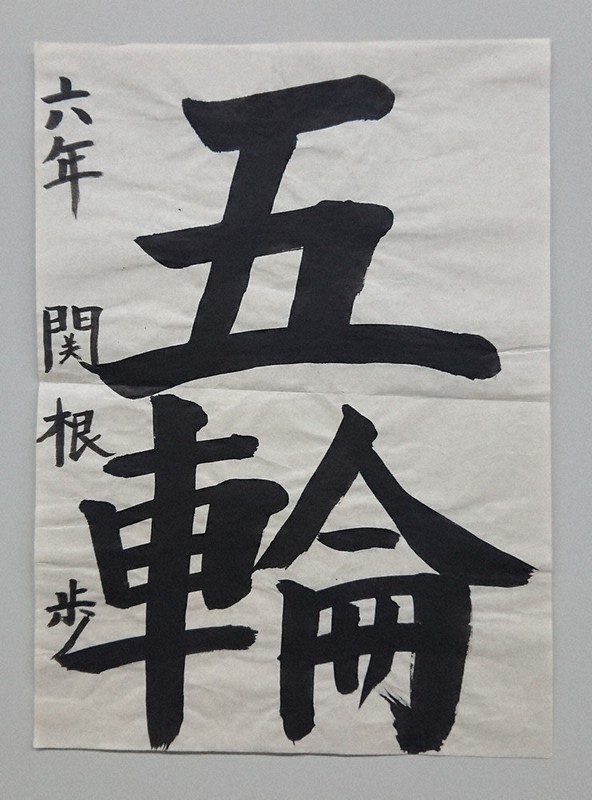 五輪
六年 関根 歩